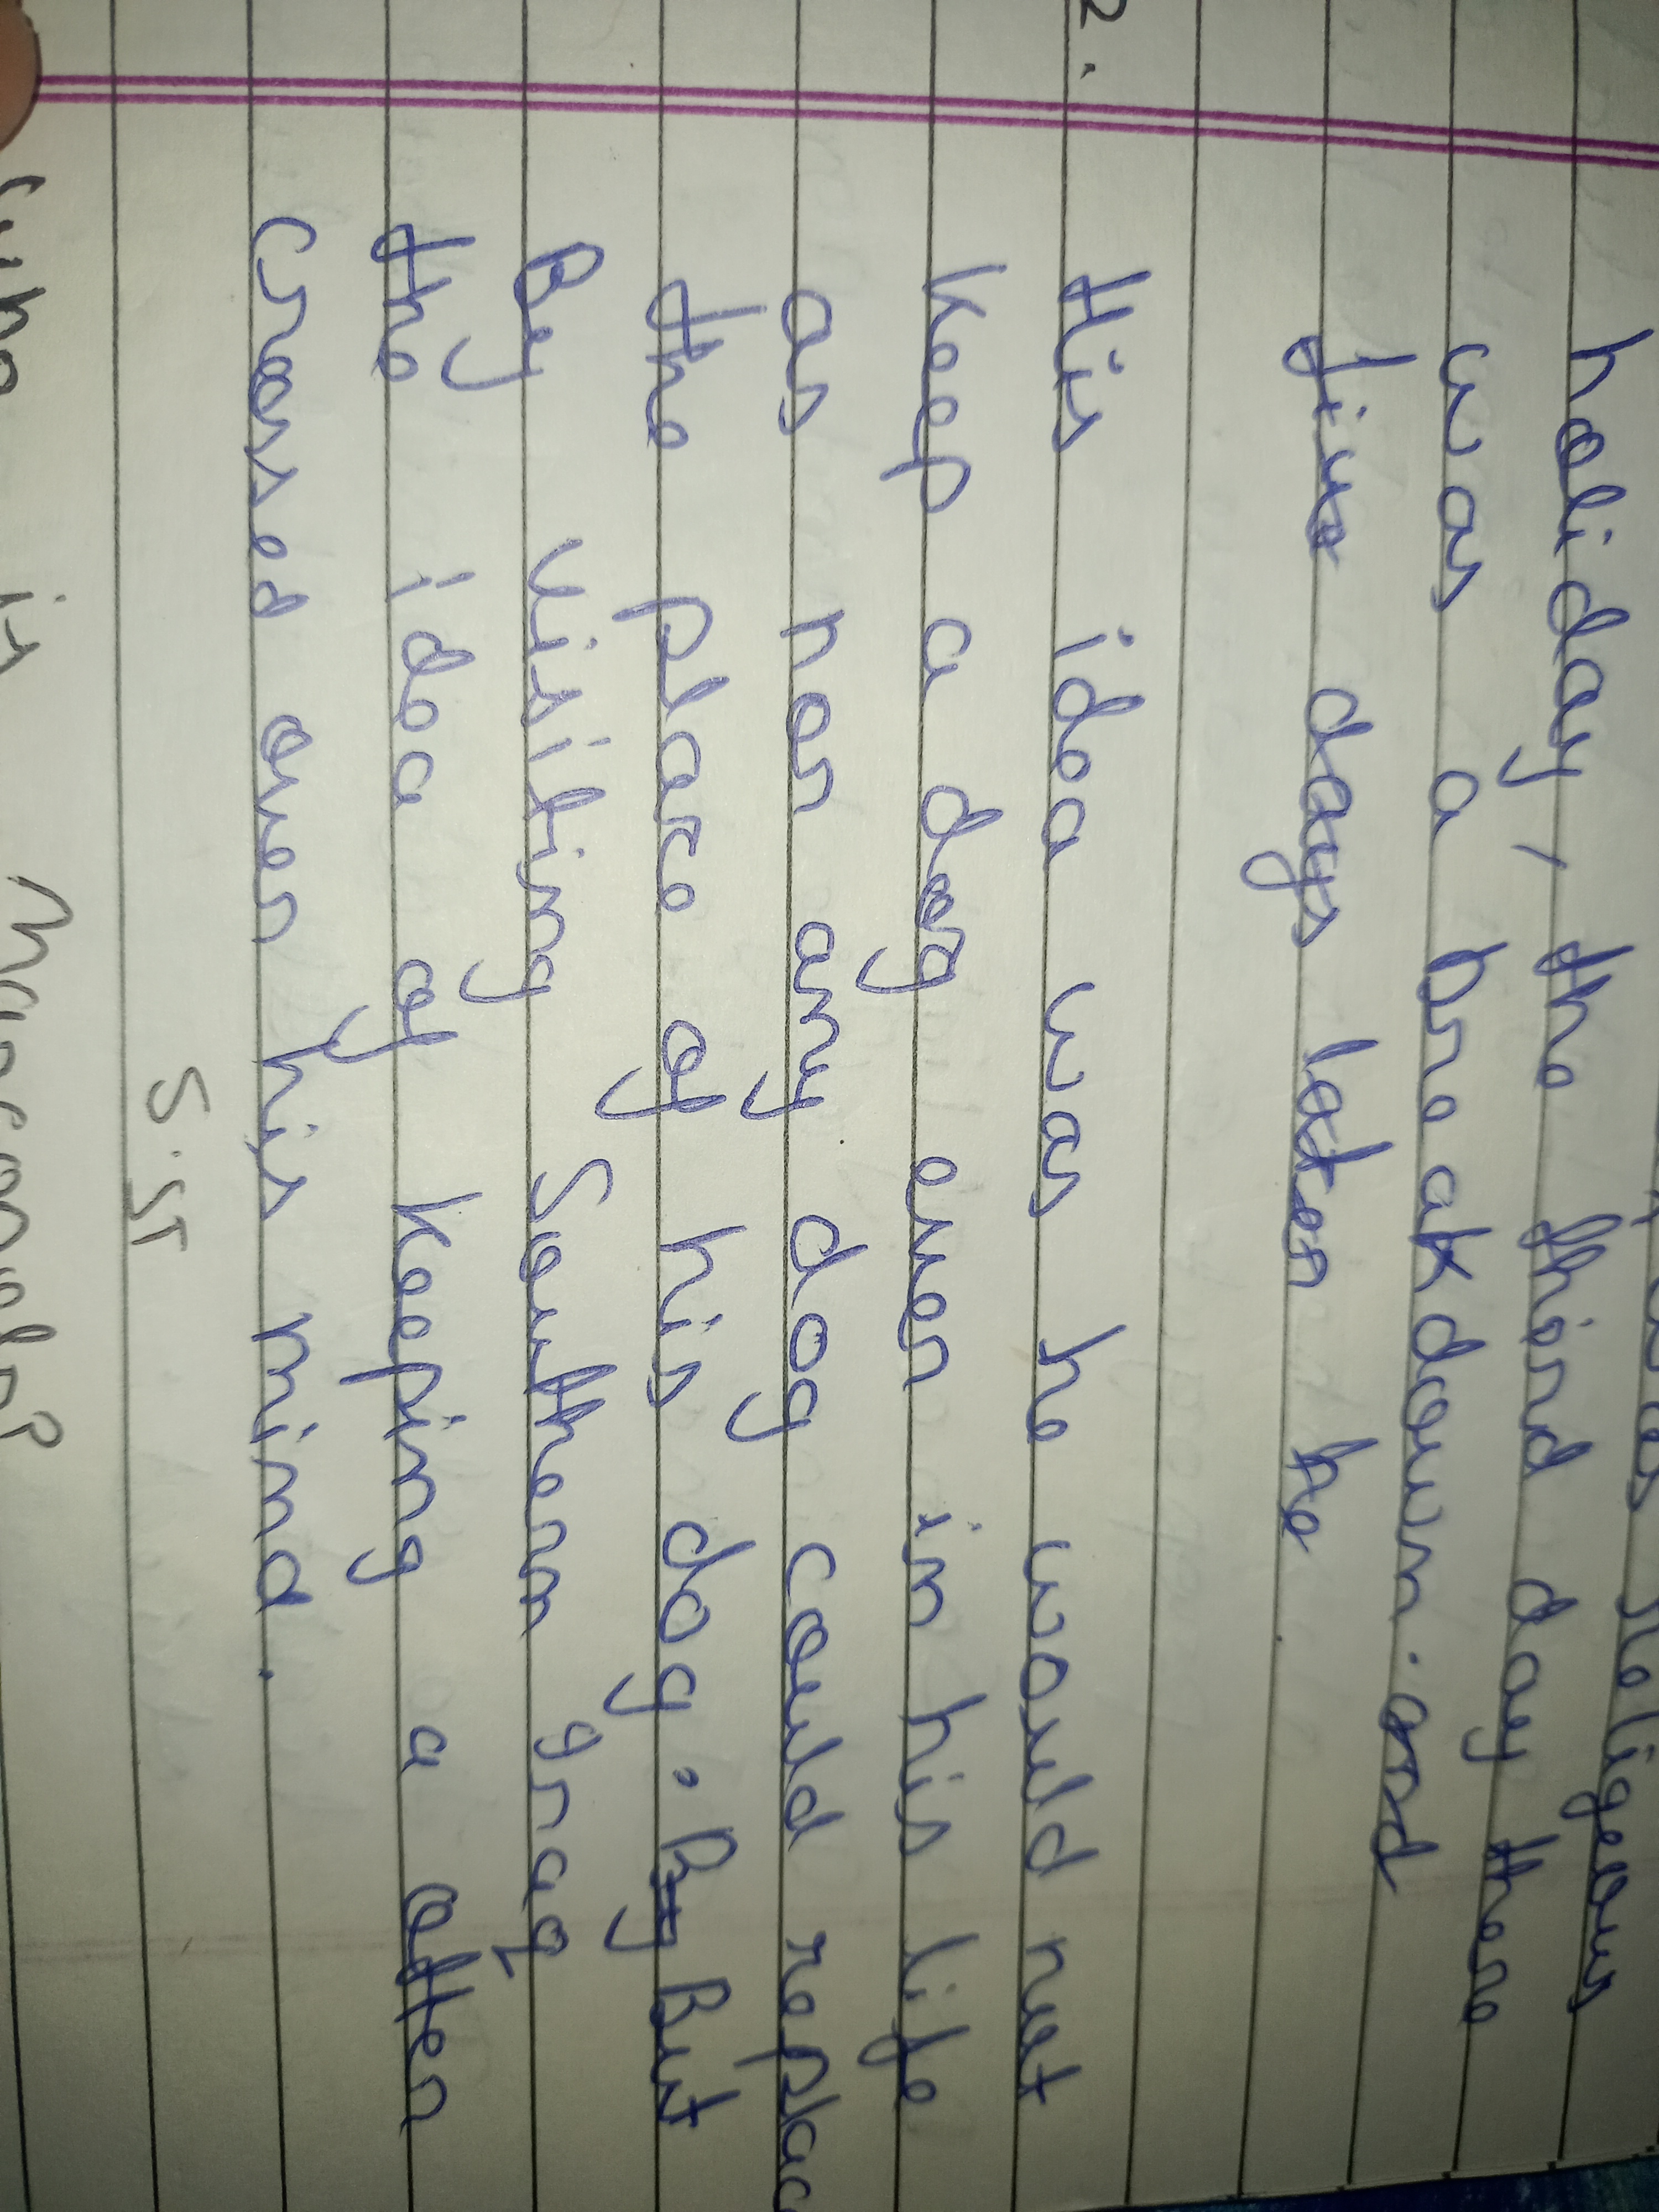 religeous
holiday, the third day there
was a breakdown. and
five days later he
2. His idea was he would not
keep a dog ever in his life
as nor any dog could replac
the place of his dog. By But
By visiting Southern graq
the idea of keeping a otter
crossed over his mind.
S.ST
who is